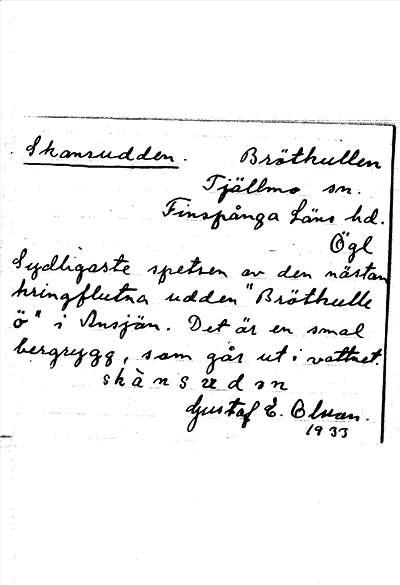 Skansudden. Bröthullen
Tjällmo sn.
Finspånga Läns hd.
Ögl
Sydligaste spetsen av den nästan
kringflutna udden "Bröthulle
ö" i Ansjön. Det är en smal
bergrygg, som går ut i vattnet.
skànsʉdən
Gustaf E. Olsson.
1933